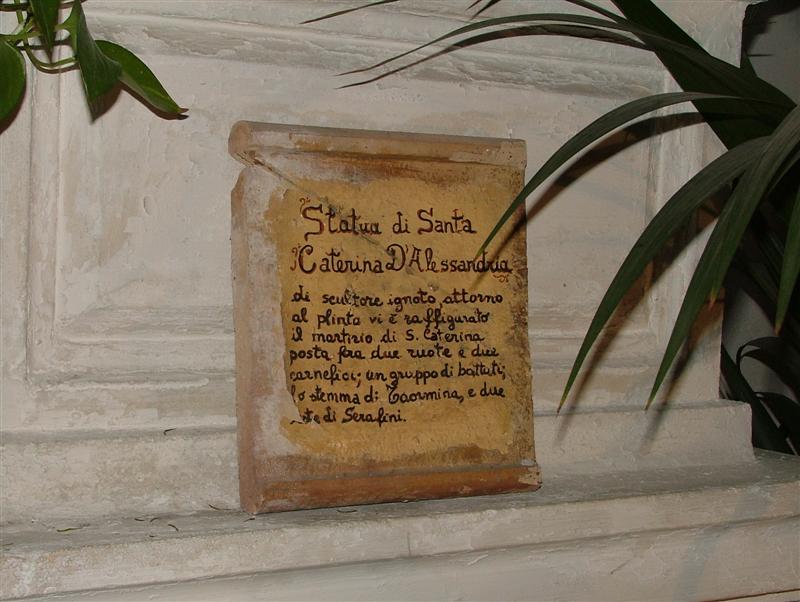 Statua di Santa
Caterina D'Alessandria
di scultore ignoto, attorno
al plinto vi è raffigurato
il martirio di S. Caterina
posta fra due ruote e due
carnefici; un gruppo di battuti;
lo stemma di Taormina, e due
di Serafini.